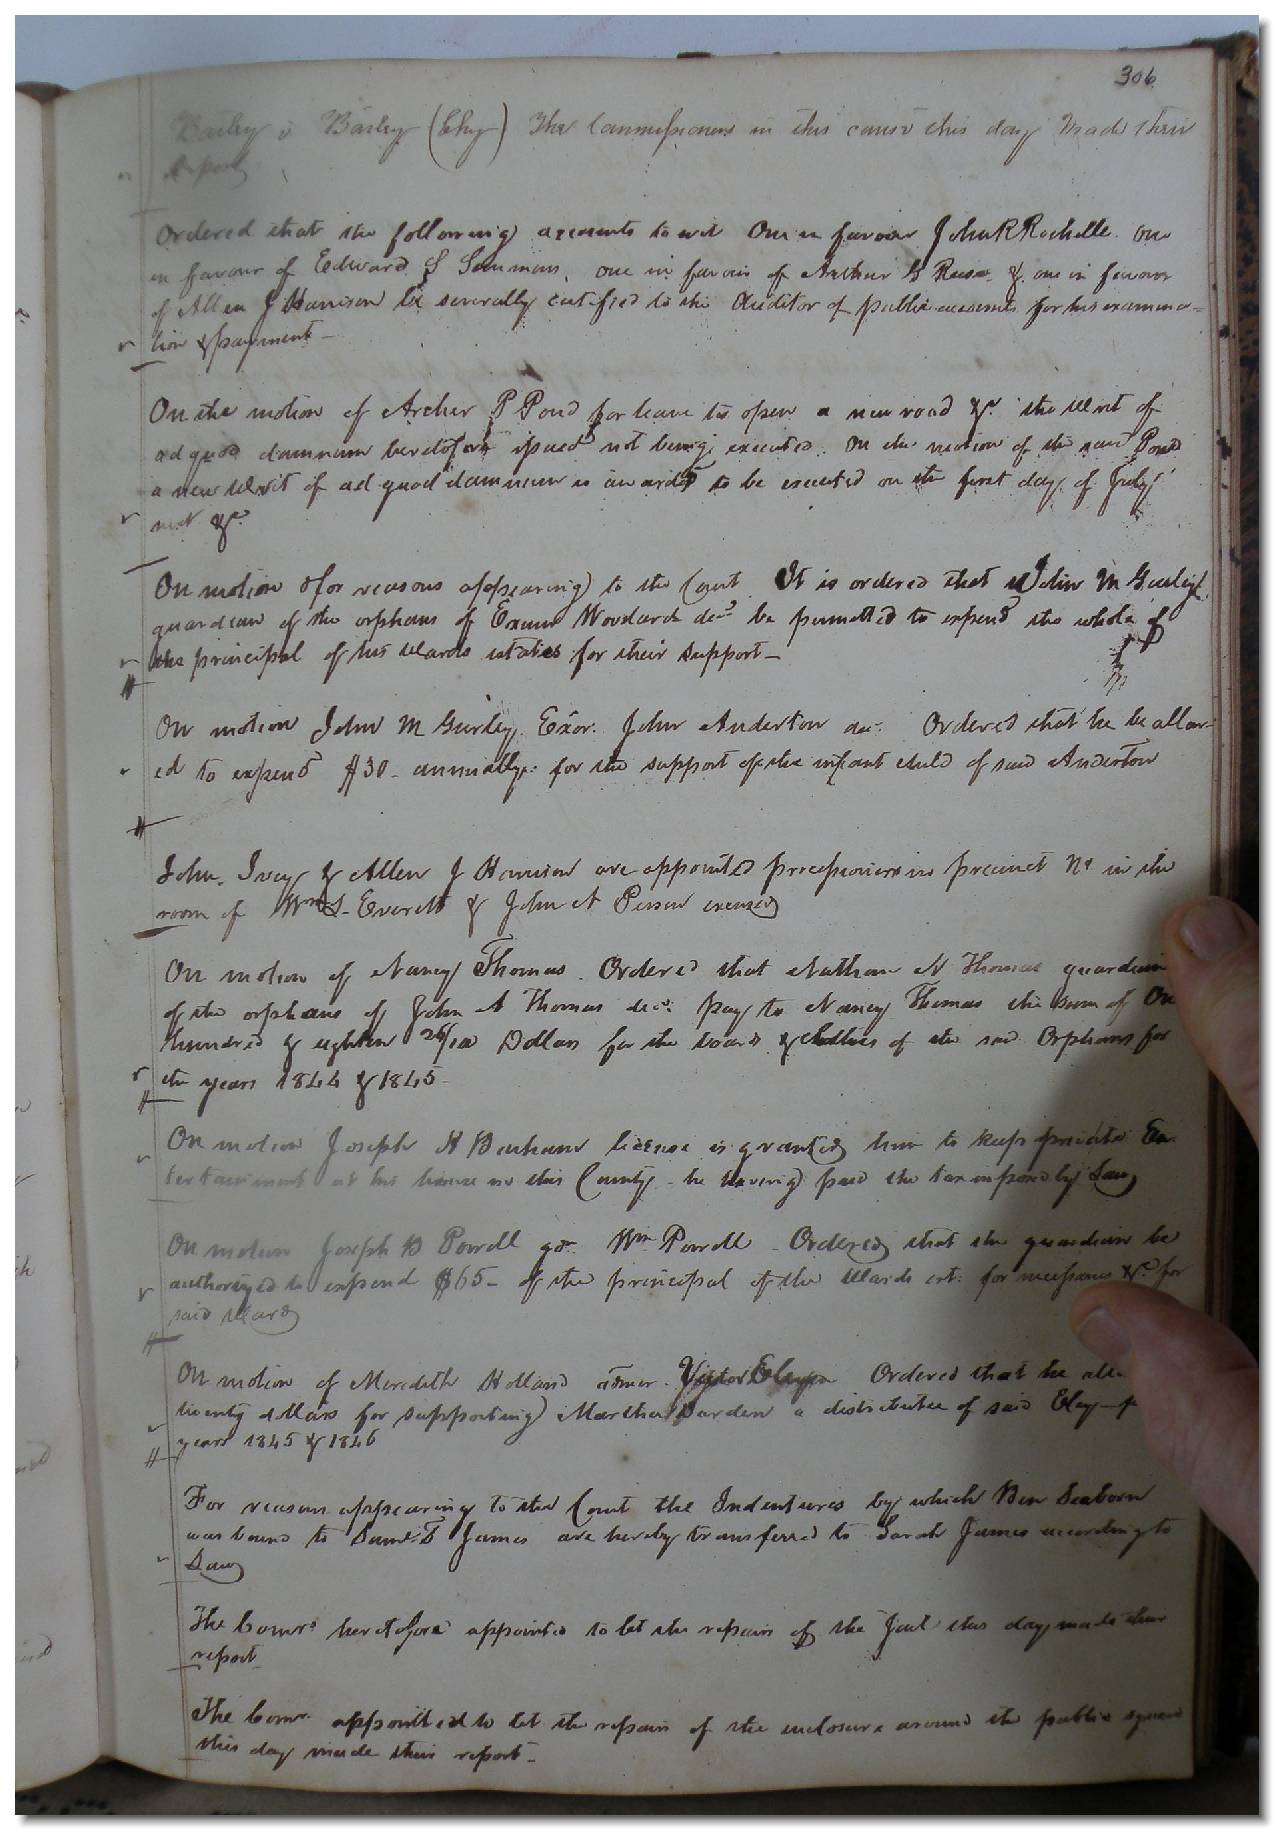 306
Bailey v Bailey (Chy) The Commissioners in this cause this day made their
Report
Ordered that the following accounts to wit One in favour John R Rochelle one
in favour of Edward S Simmons, one in favour of Arthur G Reese & one in favour
of Allen J Harrison be severally certified to the Auditor of public accounts for his examina=
tion & payment -
On the motion of Archer P Pond for leave to open a new road &c the Writ of
ad quod damnum heretofore issued not being executed. On the motion of the said Pond
a new Writ of ad quod damnum is awarded to be executed on the first day of July
next &c
On motion & for reasons appearing to the Court It is ordered that John M Gurley
guardian of the orphans of Exum Woodard decd be permitted to expend the whole of
the principal of his Wards estates for their support -
On motion John M Gurley Exor. John Anderton dec. Ordered that he be allow-
ed to expend $30 - annually for the support of the infant child of said Anderton
John Ivey & Allen J Harrison are appointed processioners in precinct No in the
room of Wm S. Everett & John A Person excused
On motion of Nancy Thomas. Ordered that Nathan N Thomas guardian
of the orphans of John A Thomas dec. pay to Nancy Thomas the sum of One
hundred & eighteen 26/100 Dollars for the board & clothes of the said Orphans for
the years 1844 & 1845 -
On motion Joseph H Barham license is granted him to keep private En-
tertainment at his house in this County - he having paid the tax imposed by Law
On motion Joseph D Powell gdn. Wm Powell - Ordered that the guardian be
authorized to expend $65 - of the principal of the Wards est: for necessaries &c for
said Ward
On motion of Meredith Holland admor. Eley Ordered that he
twenty dollars for supporting Martha Darden a distributee of said Eley -
years 1845 & 1846
For reasons appearing to the Court the Indentures by which Ben Seaborn
was bound to Saml. T James are hereby transferred to Sarah James according to
Law
The Comrs heretofore appointed to let the repairs of the Jail this day made their
report
The Comrs. appointed to let the repairs of the inclosure around the public square
this day made their report -